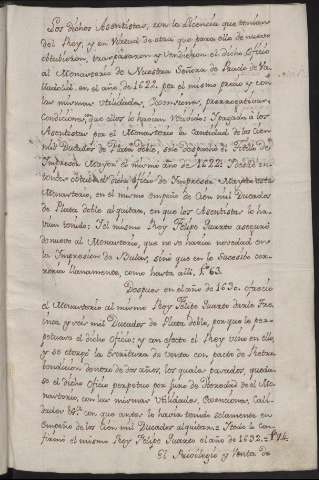 Los dichos Asentistas, con la licencia que tenian
del Rey, y en virtud de otra que para ello de nuevo
obtubieron, traspasaron y vendieron el dicho Oficio
al Monasterio de Nuestra Señora de Prado de Va-
lladolid, en el año de 1622, por el mismo precio y con
las mismas Utilidades, Exenciones, prerrogativas,
Condiciones, que ellos lo havian tenido: Y pagada a los
Asentistas por el Monasterio la cantidad de los Cien
mil Ducados de Plata doble, se despachó el Titulo de
Impresor Mayor el mismo año de 1622: Desde en-
tonces obtubo el dicho Oficio de Impresor Mayor este
Monasterio, en el mismo empeño de Cien mil Ducados
de Plata doble alquitar, en que los Asentistas lo ha-
vian tenido: Y el mismo Rey Felipe Quarto aseguró
de nuevo al Monasterio, que no se haria novedad en
la Impresion de Bulas, sino que en lo sucesibo co-
rreria llanamente, como hasta alli, f.º 63.
Despues en el año de 1630. ofreció
el Monasterio al mismo Rey Felipe Quarto darle Tre-
inta y seis mil Ducados de Plata doble, por que le per-
petuara el dicho oficio; y con efecto el Rey vino en ello,
y se otorgó la Escritura de Venta con pacto de Retro-
vendicion dentro de dos años, los quales pasados, queda-
se el dicho Oficio perpetuo por Juro de Heredad de el Mo-
nasterio, con las mismas Utilidades, Exenciones, Cali-
dades &.ª con que antes lo havia tenido solamente en
Empeño de los Cien mil Ducados alquitar = Y todo lo con-
firmó el mismo Rey Felipe Quarto el año de 1632. = f.º 74.
El Privilegio y Venta de